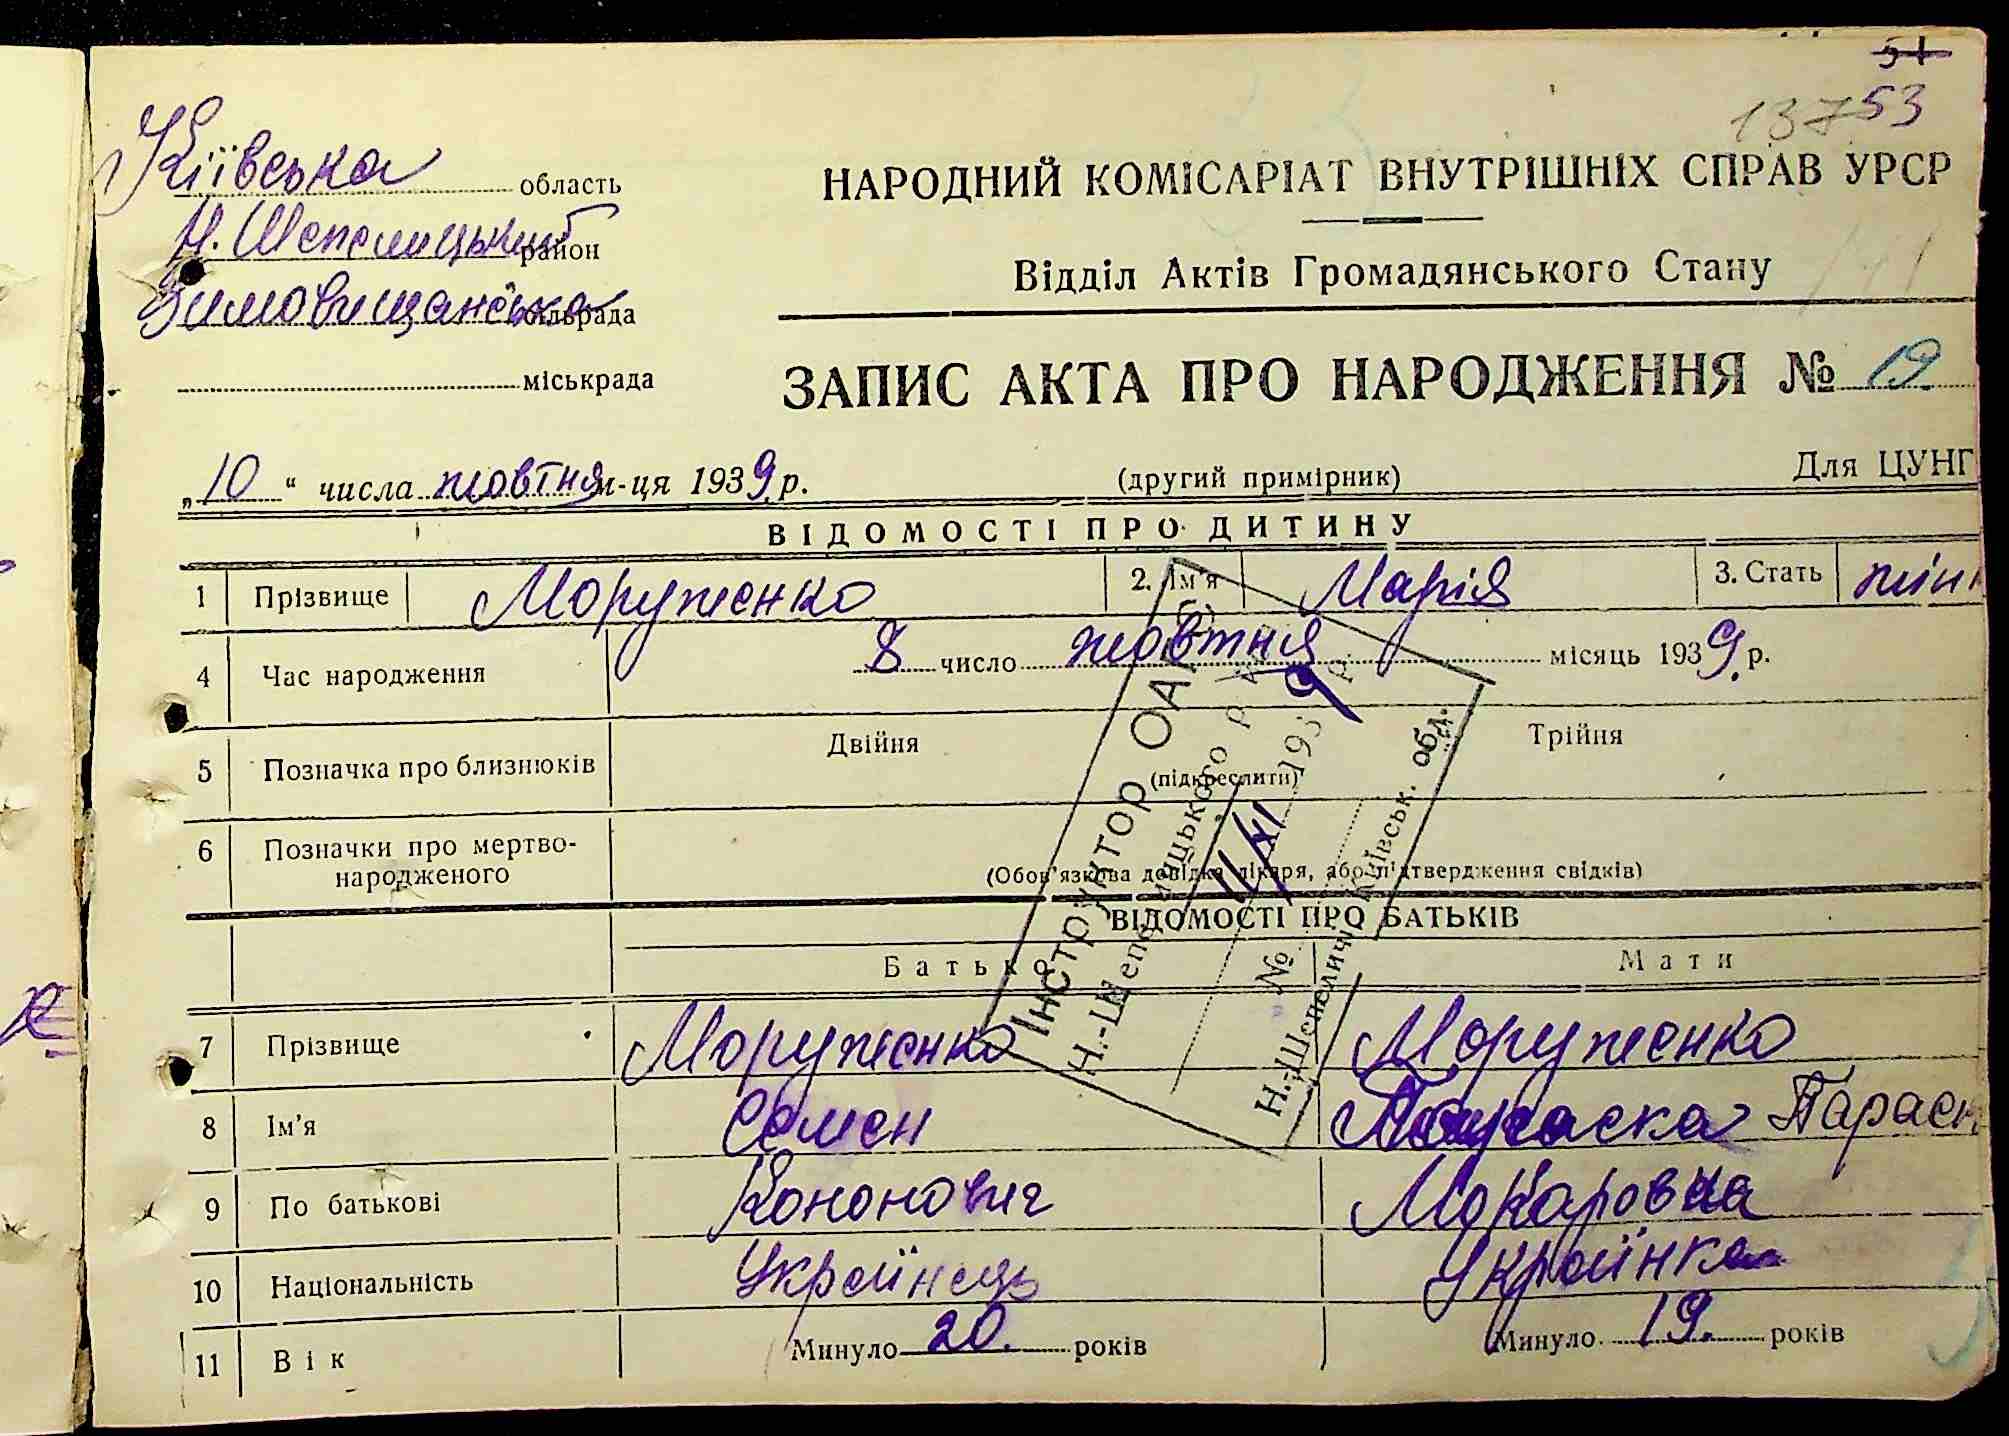 51
137 53
Київська область
Н. Шепелицький район
Зимовищанська сільрада
міськрада
НАРОДНИЙ КОМІСАРІАТ ВНУТРІШНІХ СПРАВ УРСР
Відділ Актів Громадянського Стану
ЗАПИС АКТА ПРО НАРОДЖЕННЯ № 19.
„10" числа жовтня м-ця 1939 р.
(другий примірник)
Для ЦУНГ
ВІДОМОСТІ ПРО ДИТИНУ
1 Прізвище Моруженко 2. Ім'я Марія 3. Стать жін
4 Час народження 8 число жовтня місяць 1939 р.
5 Позначка про близнюків Двійня Трійня
(підкреслити)
6 Позначки про мертво-
народженого
(Обов'язкова довідка лікаря, або підтвердження свідків)
Інструктор ОАГС
Н.-Шепелицького
11/XI 1939 р.
№
Н.-Шепеличі, Київськ. обл.
ВІДОМОСТІ ПРО БАТЬКІВ
Батько Мати
7 Прізвище Моруженко Моруженко
8 Ім'я Семен Параск
9 По батькові Кононович Макаровна
10 Національність Українець Українка
11 Вік Минуло 20. років Минуло 19. років